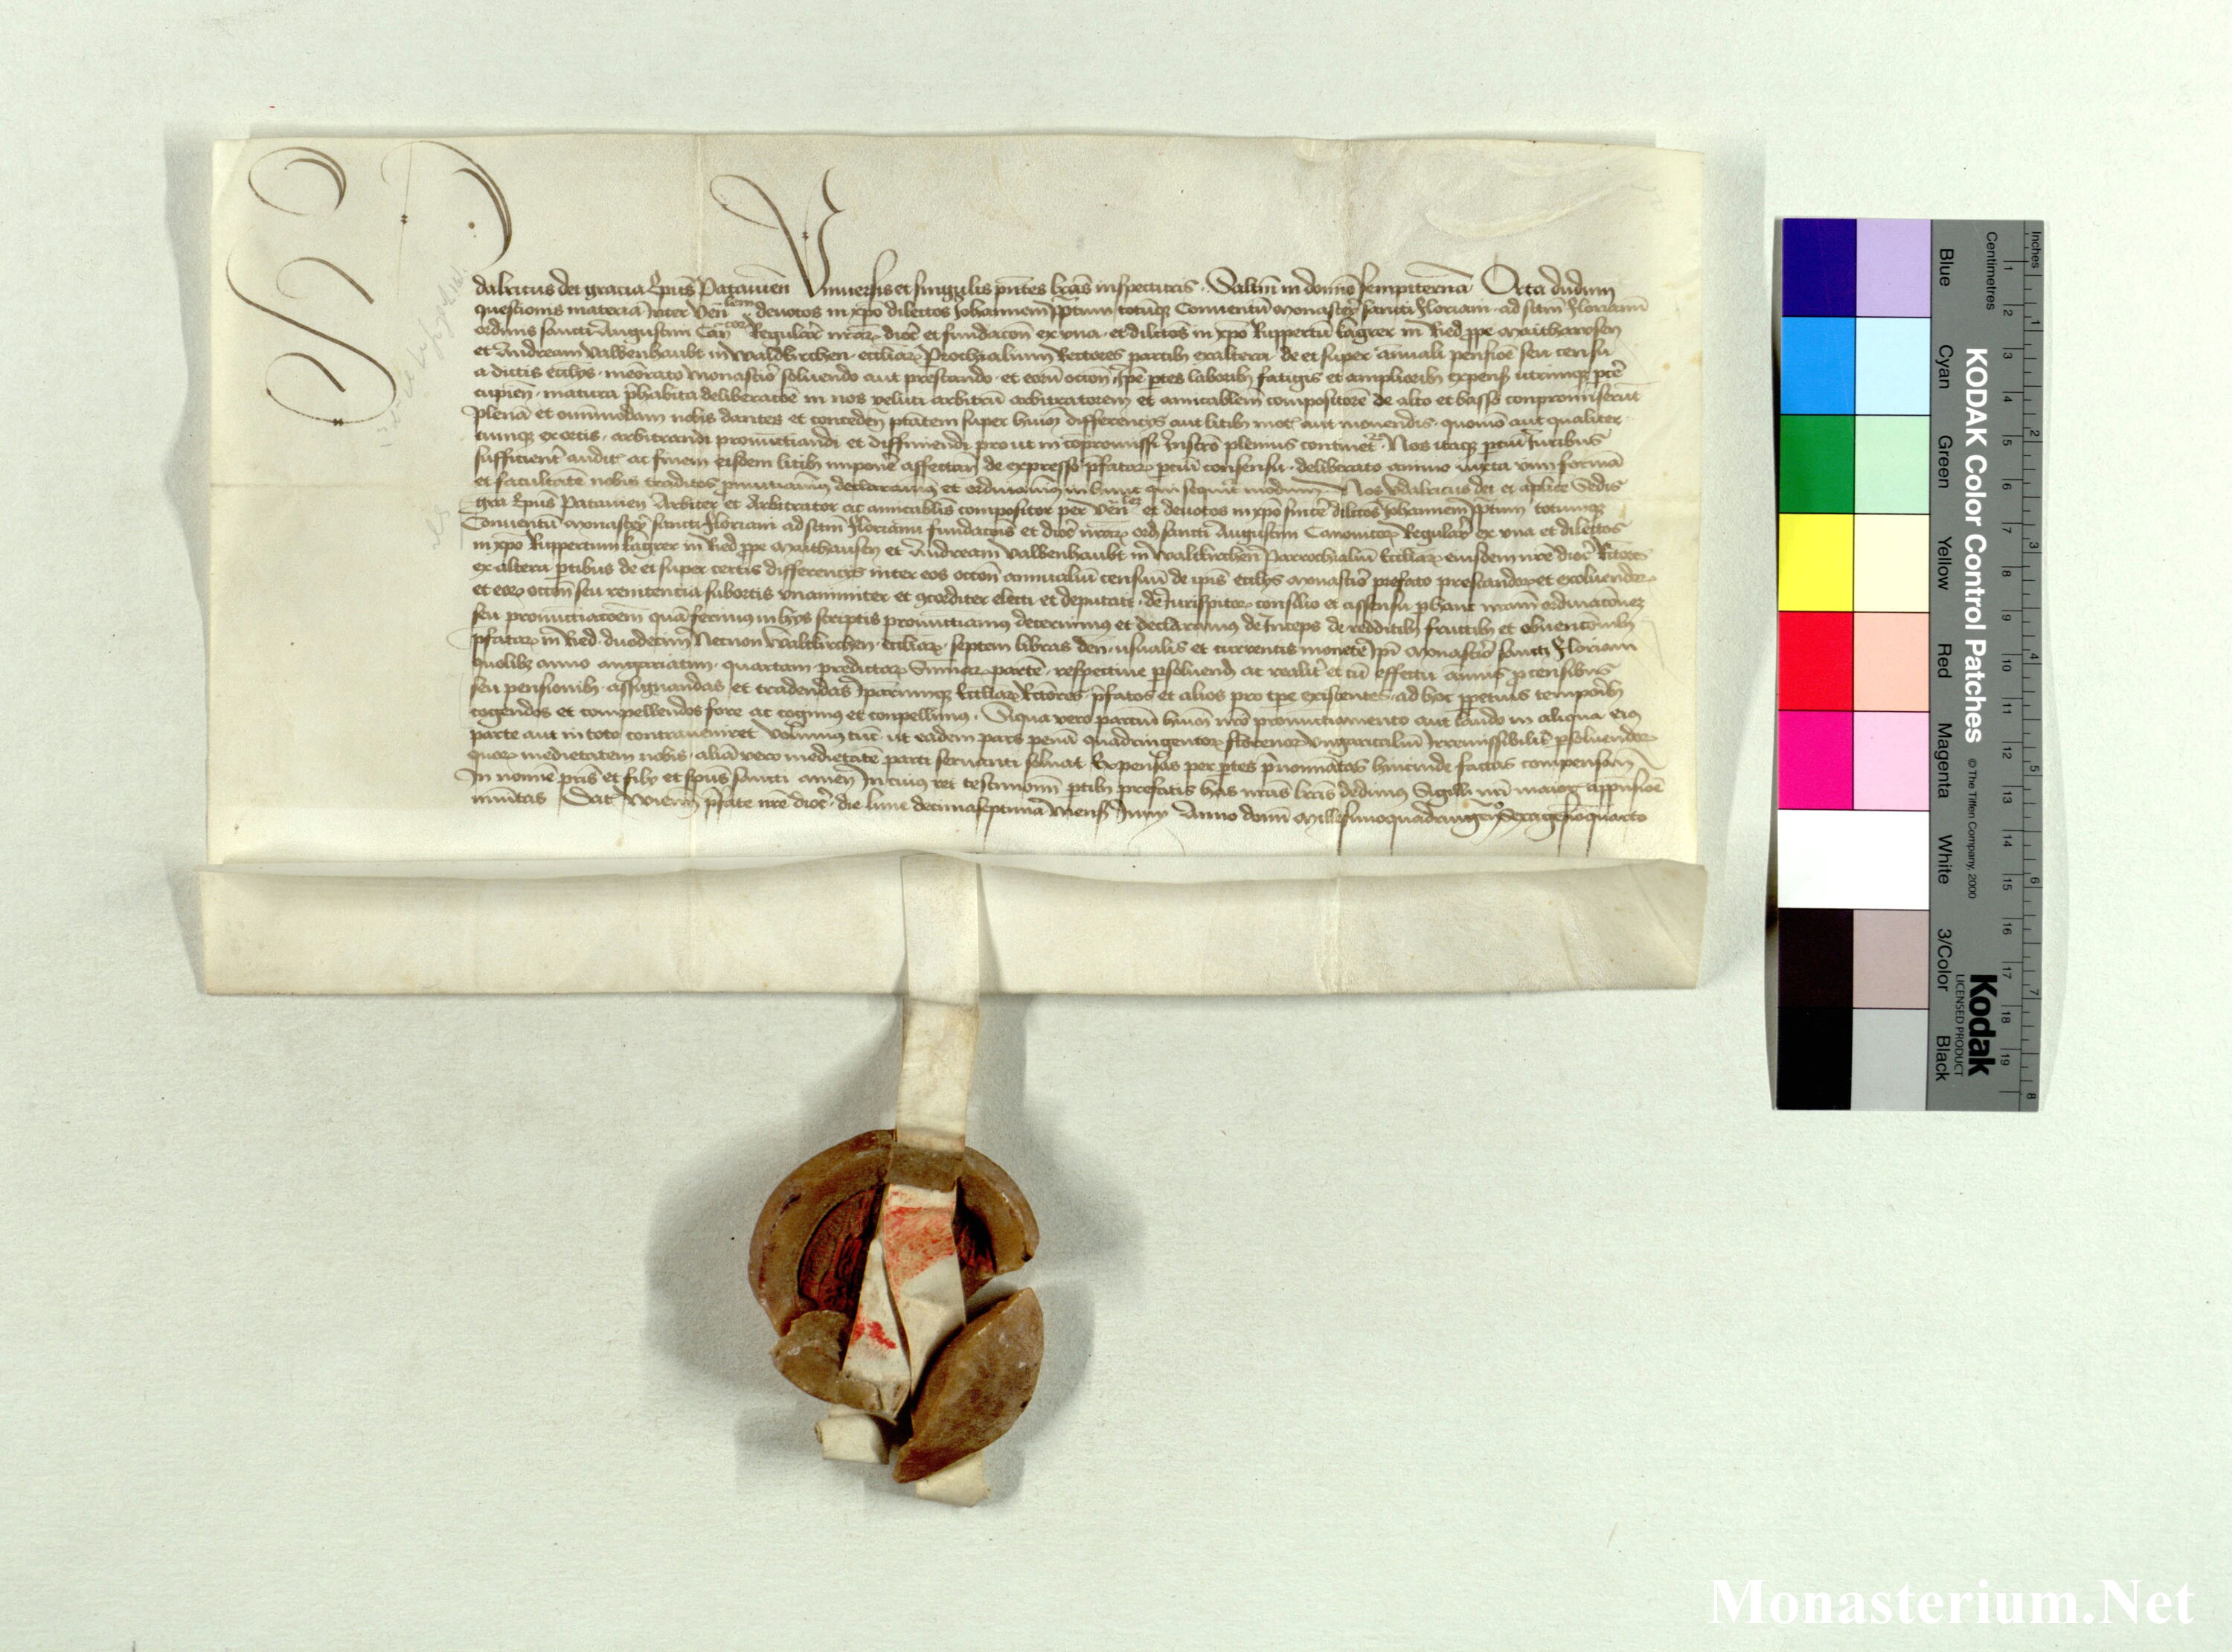 Udalricus dei gracia Ep̄us Patauien̄ Vniuersis et singulis p̄ntes l̄ras inspecturis. Salutm̄ in domino sempiternā Orta dudum
questionis materia Inter Ven̄bilem deuotos in xp̄o dilectos Johannem p̄p̄tum totumq̄ Conuentū Monasterij sancti Floriani ad sanctū Florianū
ordinis sancti Augustini Can̄cor̄ Regulariū nr̄ar̄ dioc̄ et fundacōn ex vna et dilectos in xp̄o Ruppertū kagrer in Ried p̄pe Mauthawsen
et Andream Valbenhaubt in Waldkirchen eccliar̄ Parochialium Rectores partib̄ ex altera de et super annuali pensiōe seu censu
a dictis ecclijs memorato Monasterio soluendo aut prestando et eorū occōn sepe p̄tes laborib̄ fatigijs et amplioribus expens̄ utrimq̄ p̄c̄e
cupien̄ matura p̄habita deliberacōe in nos veluti arbitrū arbitratorem et amicabilem compositorē de alto et basso compromiserūt
plenā et omnimodam nobis dantes et conceden̄ p̄tātem super huiōi differencijs aut litib̄ mot̄ aut mouendis quomō aut qualiter
cumq̄ exortis arbitrandi pronucciandi et diffiniendi prout in cōpromissi Instr̄o plenius continet̄ Nos itaq̄ p̄ciū Iuribus
sufficient̄ audit̄ ac finem eisdem litib̄ imponē affectan̄ de expresso p̄fatar̄ p̄ciū consensu deliberato animo iuxta vim formā
et facultatē nobis traditas p̄nucciam̄s declaramus et ordinam̄s in hunc qui sequit̄ modum Nos Vdalricus dei et aplice Sedis
gr̄a Ep̄us Patauien̄ Arbiter et Arbitrator ac amicabilis compositor per Ven̄bilez et deuotos in xp̄o sincē dilectos Johannem p̄p̄tum totumq̄
Conuentū Monasterij sancti Floriani ad sanctū Florianū fundacōis et dioc̄ nr̄ar̄ ord̄ sancti Augustini Canonicor̄ Regulariū ex vna et dilectos
in xp̄o Ruppertum kagrer in Ried p̄pe Mauthausen et Andream Valbenhaubt in Waltkirchen Parrochialiū Eccliar̄ eiusdem nr̄e dioc̄ R̄ctores
ex altera p̄tibus de et super certis differencijs inter eos occōn annualiū censuū de ip̄is ecclijs Monasterio prefato prestandor̄ et exoluendor̄
et eor̄ occōn seu renitencia subortis vnanimiter et 9corditer electi et deputati de Iurisp̄itor̄ consilio et assensu p̄ hanc nr̄am ordinacōnez
seu pronucciacōem quā ferimus in hijs scriptis pronucciamus decernimus et declaramus deinceps de redditib̄ fructib̄ et obuencōnib̄
p̄fatar̄ in Ried duodecim Necnon Waltkirchen eccliar̄ septem libras den̄ usualis et currentis monete ip̄i Monasterio sancti Floriani
quolibz anno angariatim quartam predictar̄ Summar̄ partē respectiue p̄soluend̄ ac realit̄ et cū effectu annuis p̄ censibus
seu pensionib̄ assignandas et tradendas Ipsarumq̄ Eccliar̄ Rectores p̄fatos et alios pro tpe existentes ad hoc p̄petuis temporib̄
cogendos et compellendos fore ac cogimus et conpellimus. Siqua vero parciū huiōi nr̄o pronucciamento aut laudo in aliqua eius
parte aut in toto contraueniret Volumus tūc ut eadem pars penā quadringentor̄ florenor̄ Vngaricaliū Irremissibilit̄ p̄soluendor̄
quor̄ medietatem nobis aliā vero medietatē parti seruanti soluat Expensas per p̄tes p̄nominatas hincinde factas compensam̄s
In nomīe pr̄is et filij et sp̄us sancti amen In cuius rei testimoniū p̄tib̄ prefatis has nr̄as l̄ras dedimus Sigilli nr̄i maior̄ appensiōe
munitas Dat̄ Wienn̄ p̄fate nr̄e dioc̄ die lune decimaseptima mens̄ Iunij Anno domī Millesimoquadringen̄mo Sexagesimoquarto
KODAK Color Control Patches © The Tiffen Company, 2000
Kodak
LICENSED PRODUCT
Blue Cyan Green Yellow Red Magenta White 3/Color Black
Inches 1 2 3 4 5 6 7 8
Centimetres 1 2 3 4 5 6 7 8 9 10 11 12 13 14 15 16 17 18 19
Monasterium.Net